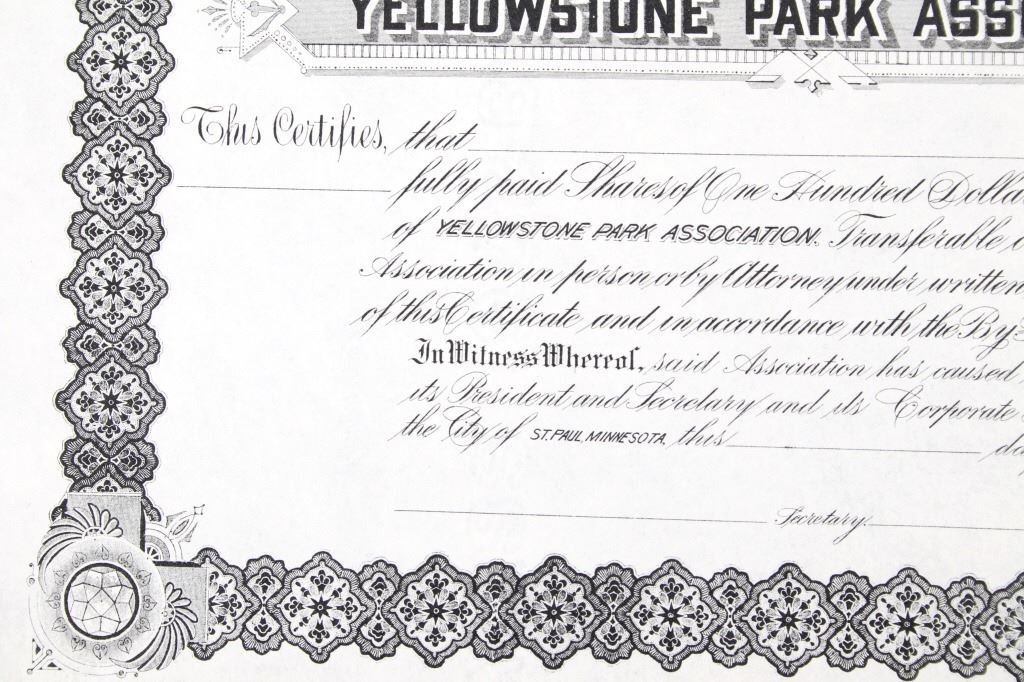 YELLOWSTONE PARK ASS
This Certifies, that
fully paid Shares of One Hundred Dolla
of YELLOWSTONE PARK ASSOCIATION. Transferable o
Association in person or by Attorney under written
of this Certificate and in accordance with the By-
In Witness Whereof, said Association has caused
its President and Secretary and its Corporate
the City of ST. PAUL, MINNESOTA, this da
Secretary.